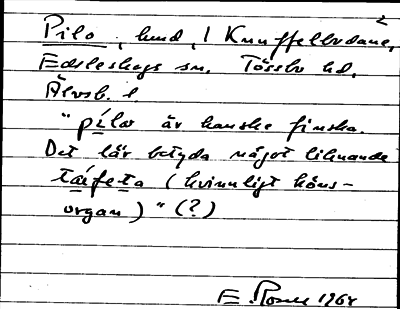 Pilo, hund, i Knuffelbodane,
Edsleskogs sn. Tössbo hd,
Älvsb. l.
"pílo är kanske finska.
Det lär betyda något liknande
táifeta (kvinnligt köns-
organ)" (?)
E. 1964